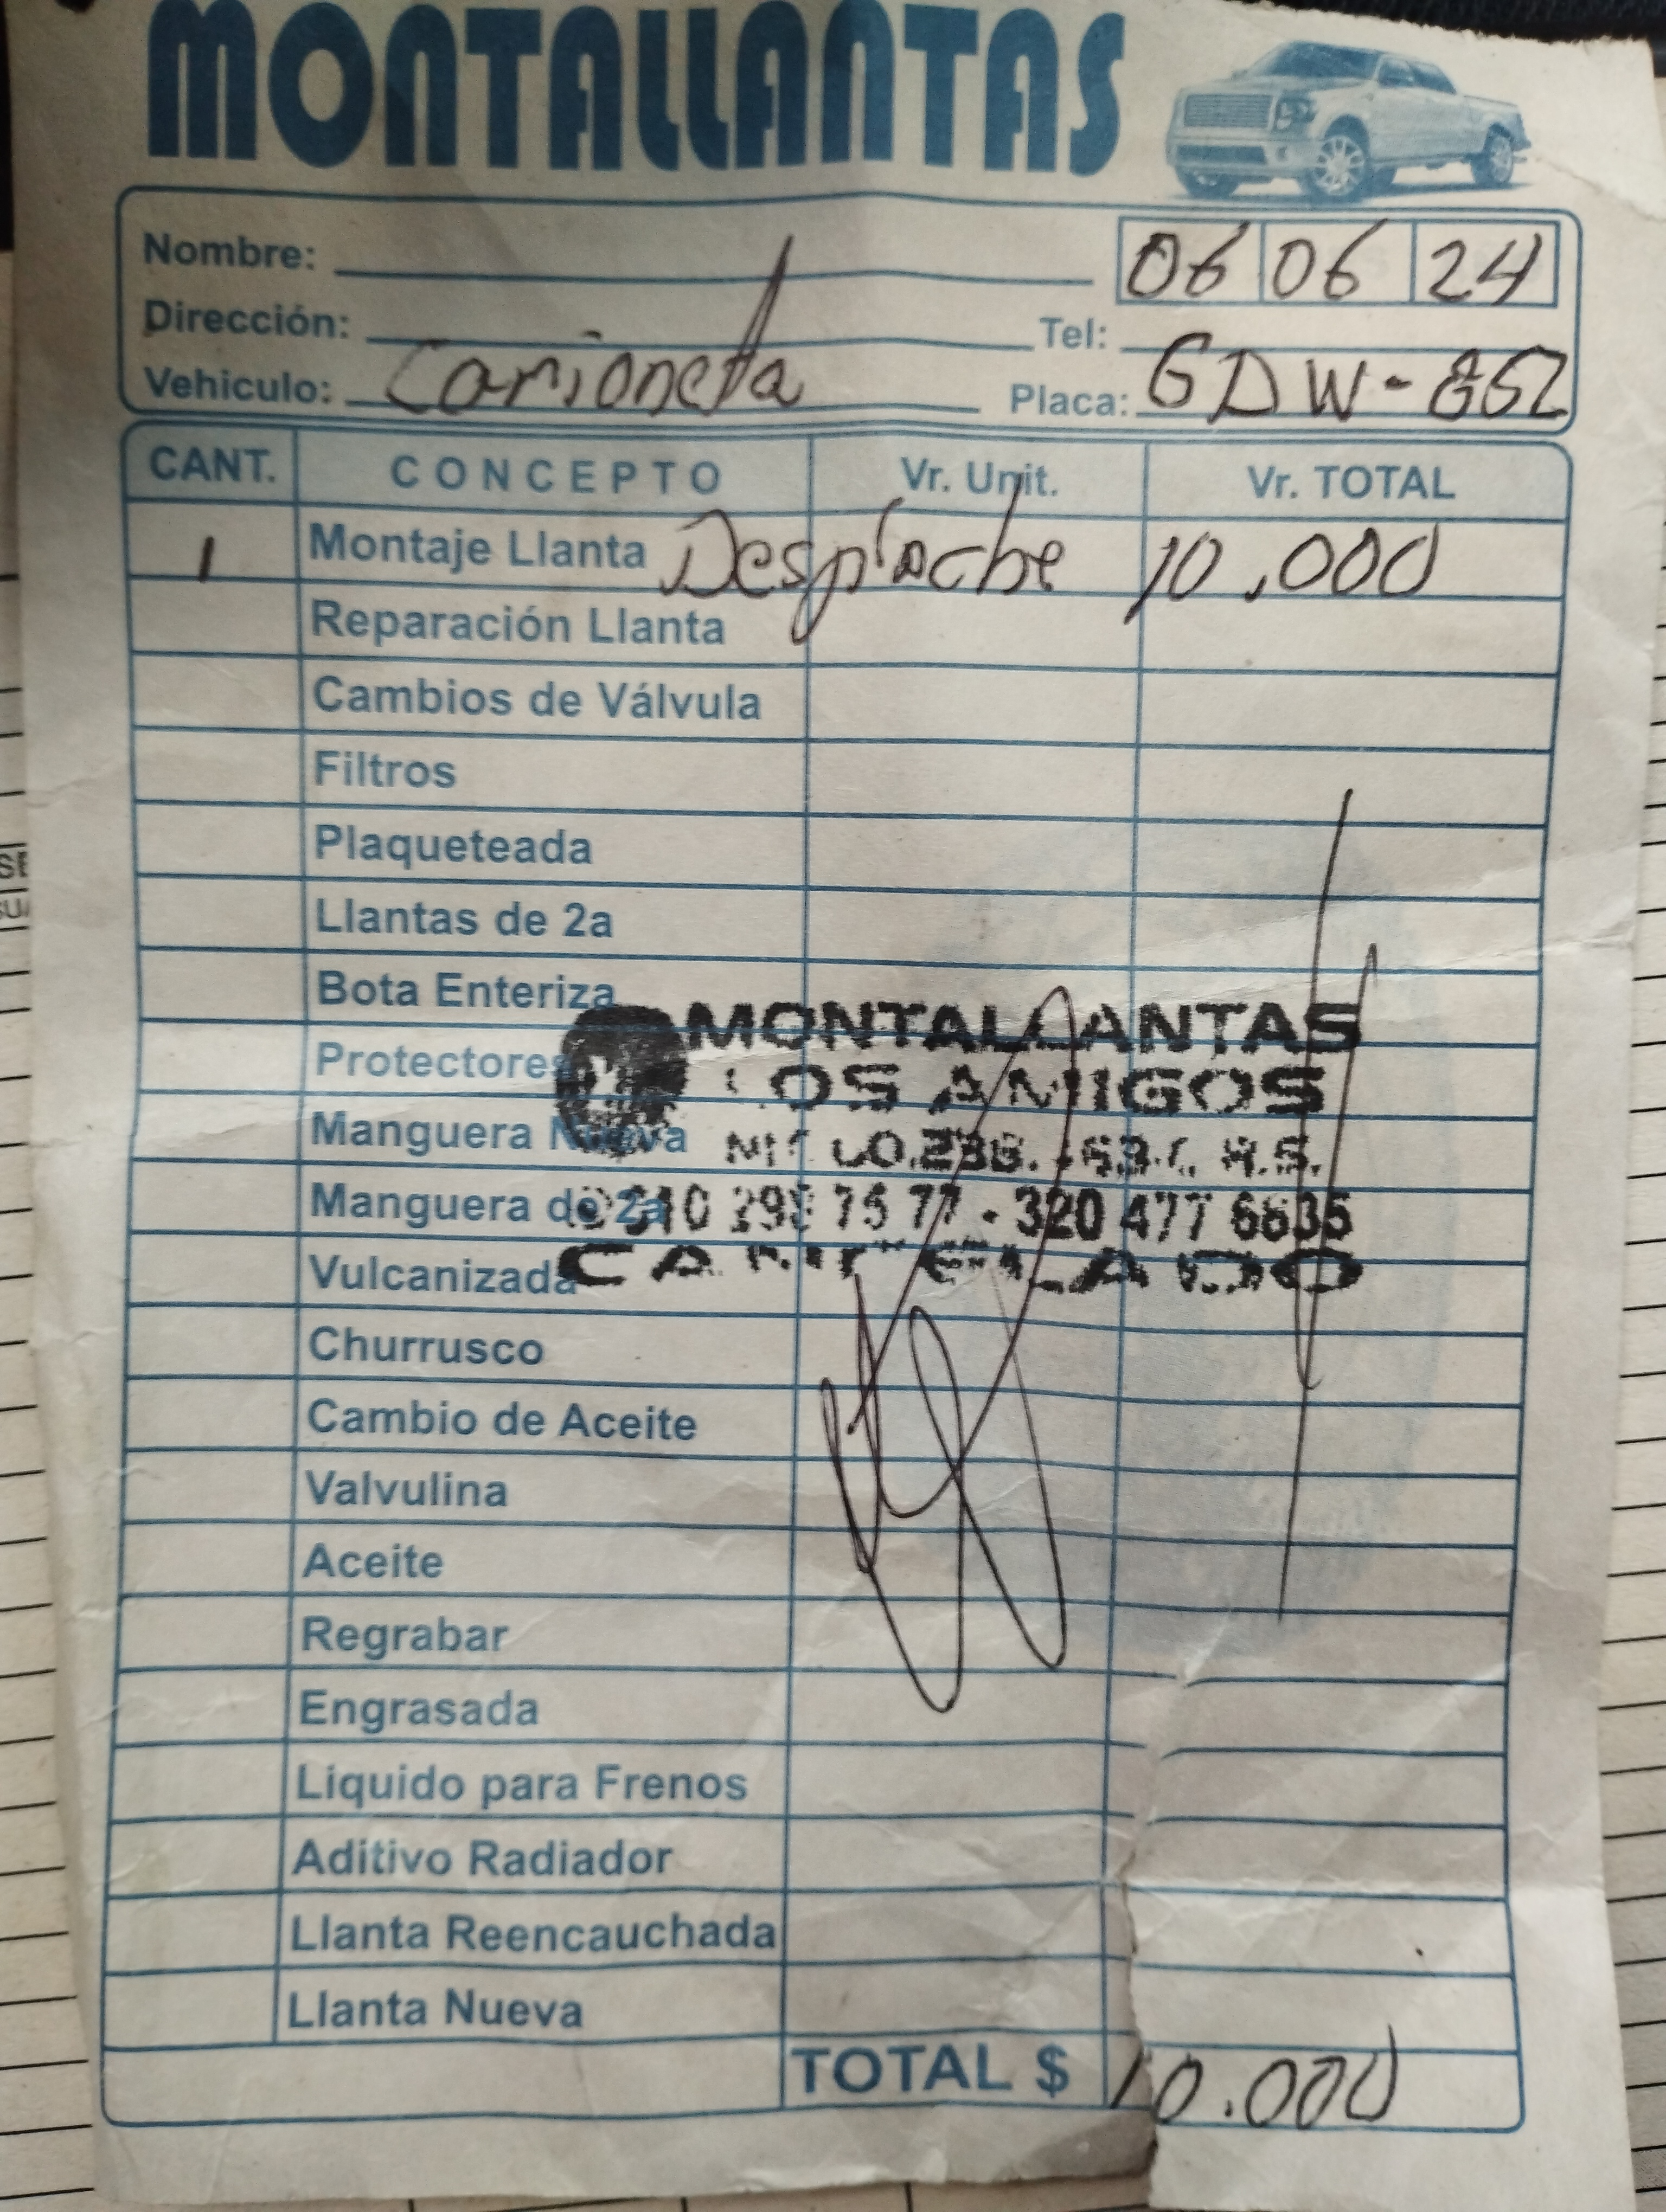 MONTALLANTAS
Nombre: 06 06 24
Dirección: Tel:
Vehiculo: Camioneta Placa: GDW-862
CANT. CONCEPTO Vr. Unit. Vr. TOTAL
1 Montaje Llanta Despinche 10.000
Reparación Llanta
Cambios de Válvula
Filtros
Plaqueteada
Llantas de 2a
Bota Enteriza
MONTALLANTAS
Protectores
LOS AMIGOS
Manguera Nueva
Manguera de 2a
77 - 320 477 6635
Vulcanizada
Churrusco
Cambio de Aceite
Valvulina
Aceite
Regrabar
Engrasada
Liquido para Frenos
Aditivo Radiador
Llanta Reencauchada
Llanta Nueva
TOTAL $ 10.000